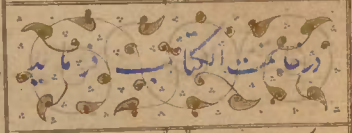 در خاتمت الکتاب فرماید